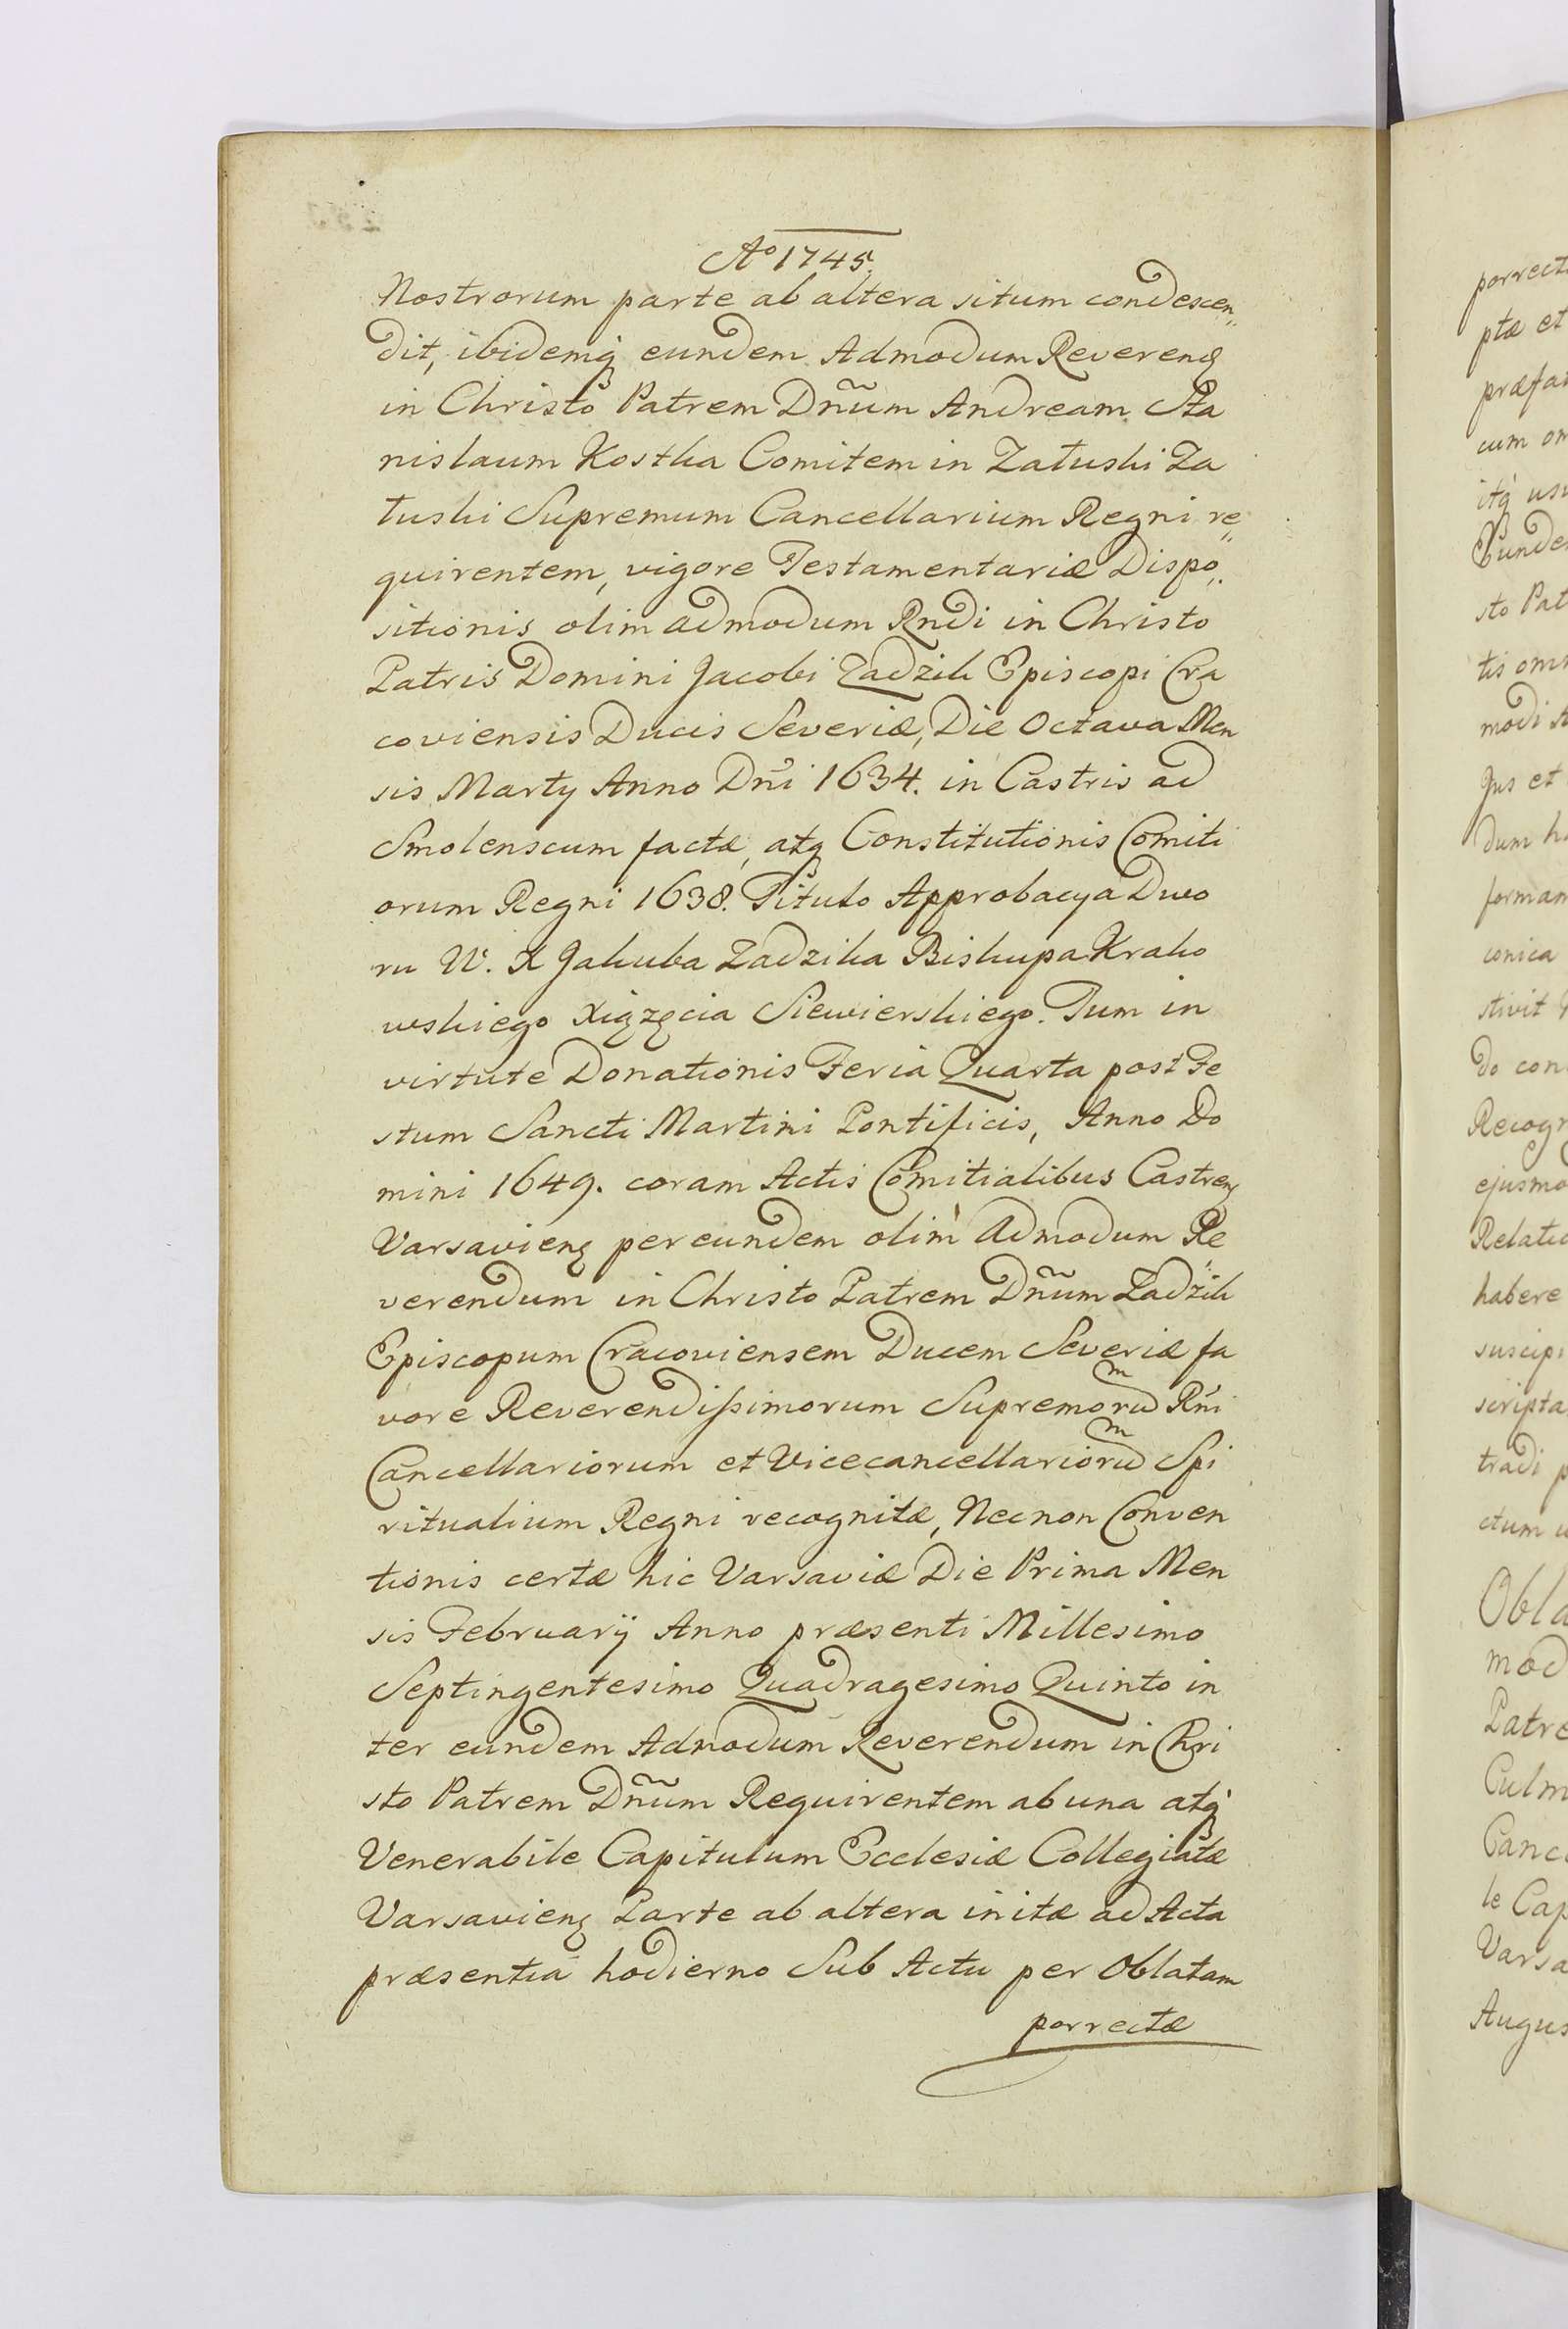 Aº 1745.
Nostrorum parte ab altera situm condescen„
dit, ibidemq́ eundem Admodum Reverenḍ
in Christo Patrem Dn̄um Andream Sta
nislaum Kostka Comitem in Załuski Za
łuski Supremum Cancellarium Regni re„
quirentem, vigore Testamentariæ Dispo„
sitionis olim admodum Rndi in Christo
Patris Domini Jacobi Zadzik Episcopi Cra
coviensis Ducis Severiæ, Die Octava Men
sis Marty Anno Dn̄i 1634. in Castris ad
Smolenscum factæ, atq Constitutionis Comiti
orum Regni 1638. Titulo Approbacya Dwo
ru W. X Jakuba Zadzika Biskupa Krako
wskiego Xiążęcia Siewierskiego. Tum in
virtute Donationis Feria Quarta post Fe
stum Sancti Martini Pontificis, Anno Do
mini 1649. coram Actis Comitialibus Castren̨
Varsavien̨ per eundem olim Admodum Re
verendum in Christo Patrem Dn̄um Zadzik
Episcopum Cracoviensem Ducem Severiæ fa
vore Reverendißimorum Supremoruͫ Rńi
Cancellariorum et Vicecancellarioruͫ Spi
ritualium Regni recognitæ, Necnon Conven
tionis certæ hic Varsaviæ Die Prima Men
sis Februarÿ Anno præsenti Millesimo
Septingentesimo Quadragesimo Quinto in
ter eundem Admodum Reverendum in Chri
sto Patrem Dn̄um Requirentem ab una atq́
Venerabile Capitulum Ecclesiæ Collegiatæ
Varsavien̨ Parte ab altera initæ ad Acta
præsentia hodierno Sub Actu per Oblatam
porrectæ